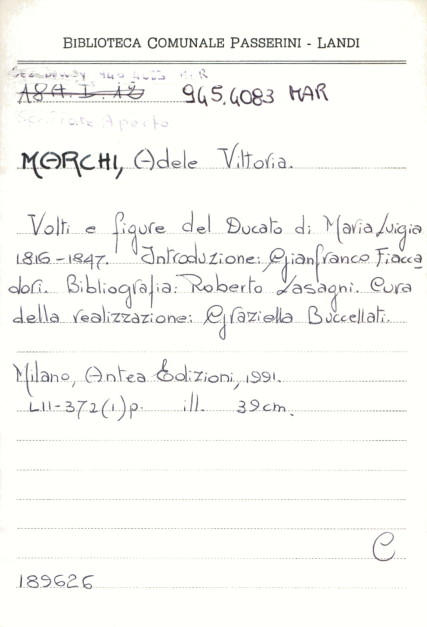 BIBLIOTECA COMUNALE PASSERINI - LANDI
945.4083 MAR
MARCHI, Adele Vittoria.
Volti e figure del Ducato di Maria Luigia
1816-1847. Introduzione: Gianfranco Fiacca
dori. Bibliografia: Roberto Lasagni. Cura
della realizzazione: Graziella Buccellati.
Milano, Antea Edizioni, 1991.
LII-372(1)p. ill. 39cm.
C
189626